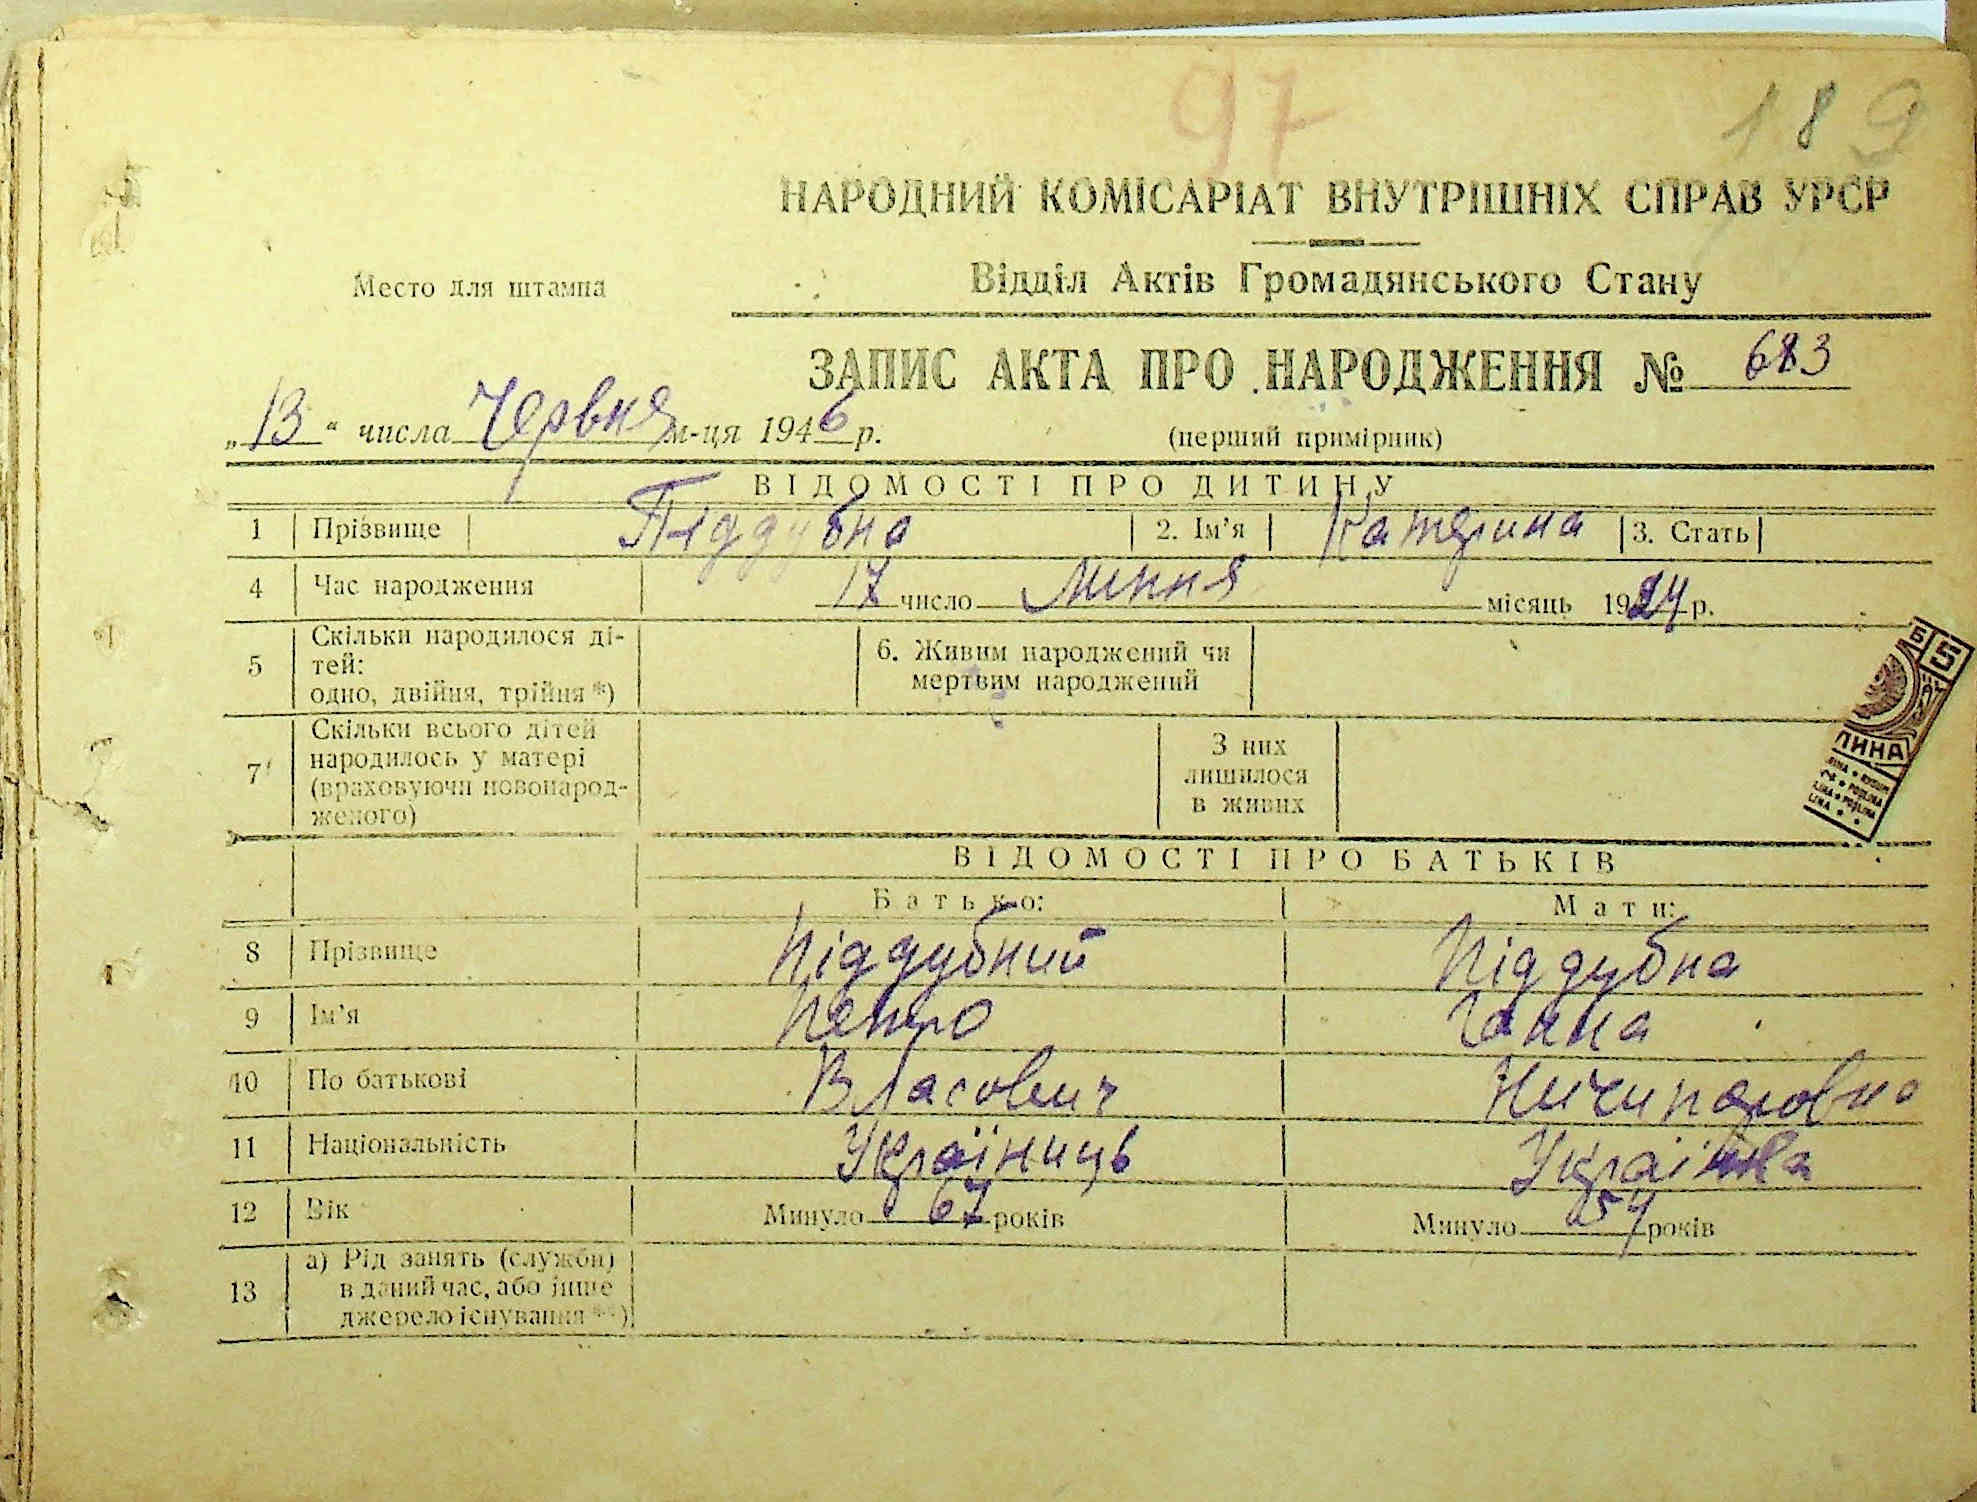 97
189
НАРОДНИЙ КОМІСАРІАТ ВНУТРІШНІХ СПРАВ УРСР
Место для штампа
Відділ Актів Громадянського Стану
ЗАПИС АКТА ПРО НАРОДЖЕННЯ № 683
„13“ числа Червня м-ця 1946 р.
(перший примірник)
ВІДОМОСТІ ПРО ДИТИНУ
1 Прізвище Піддубна 2. Ім'я Катерина 3. Стать
4 Час народження 17 число Липня місяць 1924 р.
5 Скільки народилося ді-
тей:
одно, двійня, трійня*)
6. Живим народжений чи
мертвим народжений
7 Скільки всього дітей
народилось у матері
(враховуючи новонарод-
женого)
З них
лишилося
в живих
ВІДОМОСТІ ПРО БАТЬКІВ
Батько: Мати:
8 Прізвище Піддубний Піддубна
9 Ім'я Петро Ганна
10 По батькові Власович Ничипоровна
11 Національність Україниць Українка
12 Вік Минуло 67 років Минуло 54 років
13 а) Рід занять (служби)
в даний час, або інше
джерело існування**)